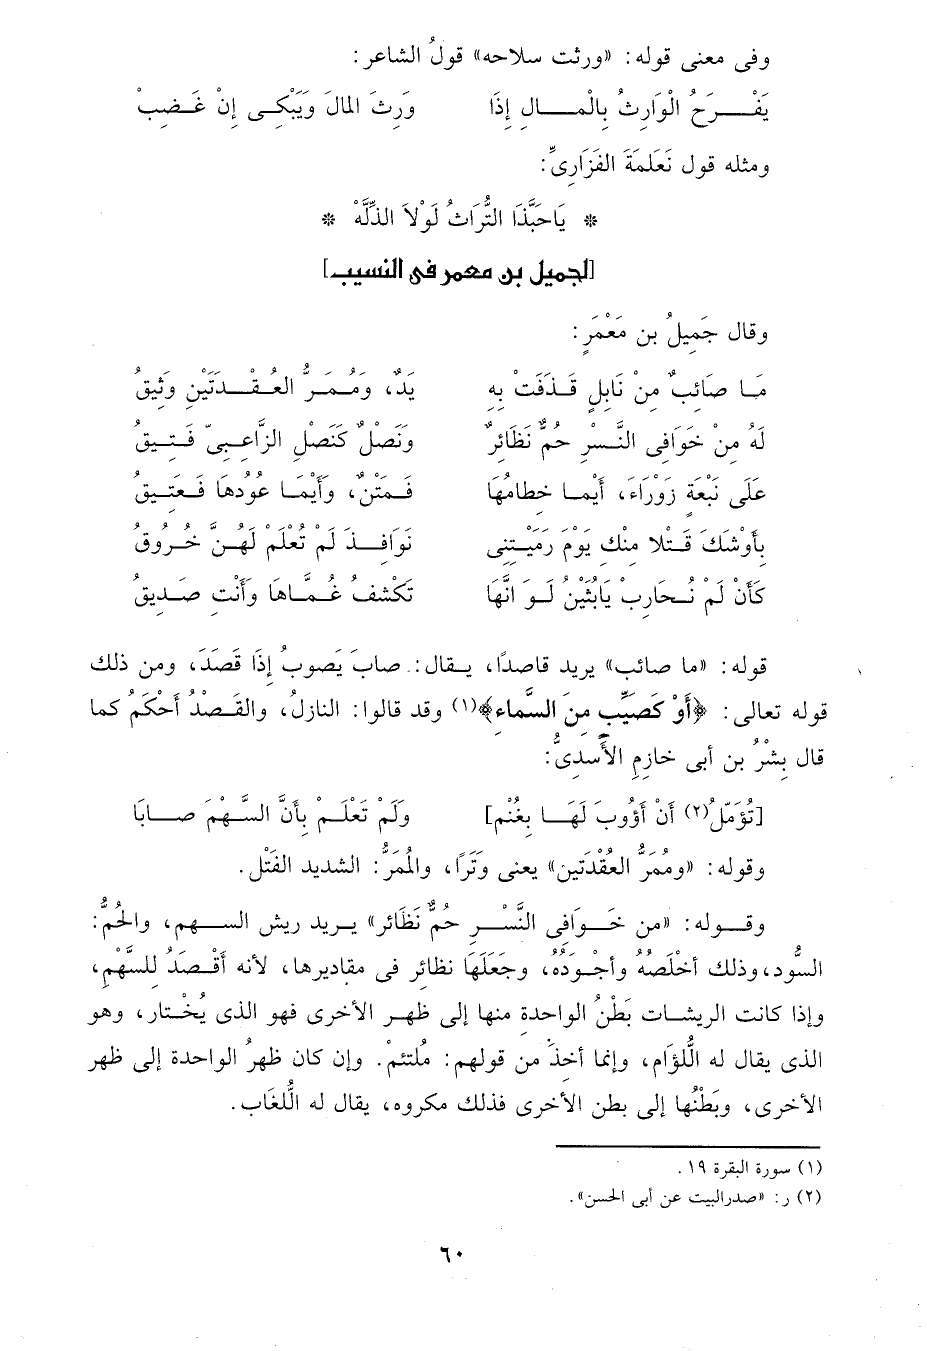 وفى معنى قوله: «ورثت سلاحه» قولُ الشاعر:
يَفْـــرَحُ الْوَارِثُ بِالْمـــالِ إِذَا وَرِثَ المَالَ وَيَبْكِى إِنْ غَـضِبْ
ومثله قول نَعَلمَةَ الفَزَارِىِّ:
* يَاحَبَّذَا التُّرَاثُ لَوْلاَ الذِّلَّهْ *
[لجميل بن معمر فى النسيب]
وقال جَمِيلُ بن مَعْمَرٍ:
مَـا صَائِبٌ مِنْ نَابِلٍ قَـذَفَتْ بِهِ يَدٌ، وَمُـمَـرُّ العُـقْـدَتَيْنِ وَثِيقُ
لَهُ مِنْ خَوَافِى النَّسْـرِ حُمٌّ نَظَائِرٌ وَنَصْلٌ كَنَصْلِ الزَّاعِـبِىِّ فَـتِـيقُ
عَلَى نَبْعَةٍ زَوْرَاءَ، أَيْمـا خِطَامُهَا فَـمَتْنٌ، وَأَيْمَـا عُودُهَا فَـعَتِـيقُ
بِأَوْشَكَ قَـتْلا مِنْكِ يَوْمَ رَمَيْـتِنِى نَوَافِـذَ لَمْ تُعْلَمْ لَهُـنَّ خُـرُوقُ
كَأَنْ لَمْ نُـحَارِبْ يَابُثَيْنُ لَـوَ انَّهَا تَكَشَّفُ غُـمَّاهَا وَأَنْتِ صَـدِيقُ
قوله: «ما صائب» يريد قاصدًا، يـقال: صابَ يَصوبُ إِذَا قَصَدَ، ومن ذلك
قوله تعالى: ﴿أَوْ كَصَيِّبٍ مِنَ السَّمَاءِ﴾(١) وقد قالوا: النازلُ، والقَـصْدُ أحْكَمُ كما
قال بِشْرُ بن أبى خازِمٍ الأَسدِىُّ:
[تُؤَمِّلُ(٢) أَنْ أَؤُوبَ لَهَـا بِغُنْمٍ] وَلَمْ تَعْلَـمْ بِأَنَّ السَّـهْمَ صـابَا
وقوله: «ومُمَرُّ العُقْدَتَينِ» يعنى وَتَرًا، والمُمَرُّ: الشديد الفَتْل.
وقـوله: «من خَـوافِى النَّسْـرِ حُمٌّ نَظَائر» يـريد ريش السـهم، والحُمُّ:
السُّود، وذلك أخْلَصُهُ وأجْـوَدُه، وجَعَلَهَا نظائر فى مقاديرها، لأنه أقْـصَدُ للسَّهْمِ،
وإذا كانت الريشـات بَطْنُ الواحدة منها إلى ظهـر الأخرى فهو الذى يُخْـتار، وهو
الذى يقال له اللُّؤَام، وإنما أخذَ من قولهم: مُلتئِمْ. وإن كان ظهرُ الواحدة إلى ظهر
الأخرى، وبَطْنُها إلى بطن الأخرى فذلك مكروه، يقال له اللُّغَاب.
(١) سورة البقرة ١٩.
(٢) ر: «صدرالبيت عن أبى الحسن».
٦٠